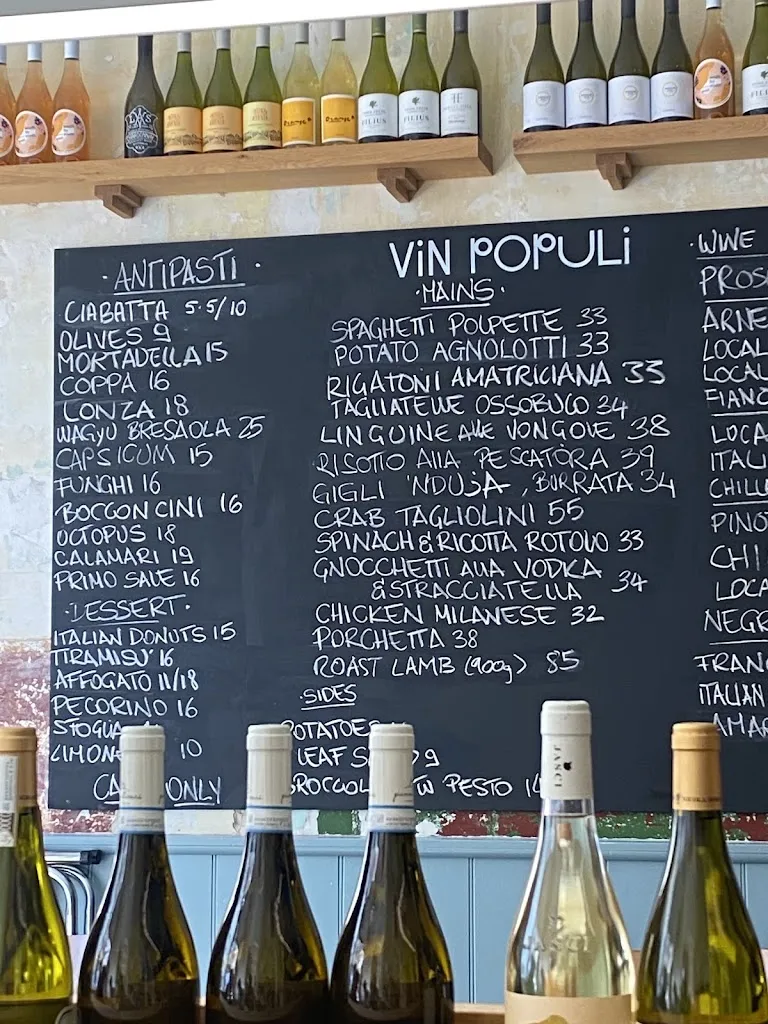 VIN POPULI
· ANTIPASTI ·
CIABATTA 5.5/10
OLIVES 9
MORTADELLA 15
COPPA 16
LONZA 18
WAGYU BRESAOLA 25
CAPSICUM 15
FUNGHI 16
BOCCONCINI 16
OCTOPUS 18
CALAMARI 19
PRIMO SALE 16
· DESSERT ·
ITALIAN DONUTS 15
TIRAMISU' 16
AFFOGATO 11/18
PECORINO 16
10
ONLY
· MAINS ·
SPAGHETTI POLPETTE 33
POTATO AGNOLOTTI 33
RIGATONI AMATRICIANA 33
TAGLIATELLE OSSOBUCO 34
LINGUINE ALLE VONGOLE 38
RISOTTO ALLA PESCATORA 39
GIGLI 'NDUJA, BURRATA 34
CRAB TAGLIOLINI 55
SPINACH & RICOTTA ROTOLO 33
GNOCCHETTI ALLA VODKA
& STRACCIATELLA 34
CHICKEN MILANESE 32
PORCHETTA 38
ROAST LAMB (900g) 85
SIDES
POTATOES
LEAF 9
PESTO
· WINE
LOCAL
LOCAL
PINO
LOCA
NEGR
FRAN
ITALIAN
AMAR
FILIUS
FILIUS
JASCI